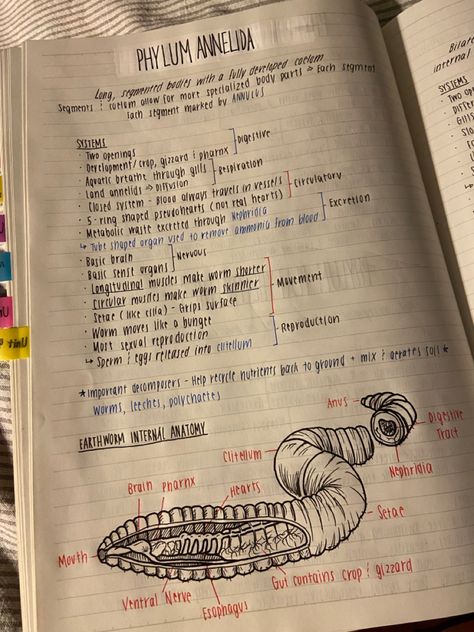 PHYLUM ANNELIDA
Long, segmented bodies with a fully developed coelom
Segments & coelom allow for more specialized body parts → Each segment
Each segment marked by ANNULUS
SYSTEMS
· Two openings
· Development/crop, gizzard & pharnx
Digestive
· Aquatic breathe through gills
· Land annelids → Diffusion
Respiration
· Closed system - Blood always travels in vessels
· 5-ring shaped pseudohearts (not real hearts)
Circulatory
· Metabolic waste excreted through Nephridia
↳ Tube shaped organ used to remove ammonia from blood
Excretion
· Basic brain
· Basic sense organs
Nervous
· Longitudinal muscles make worm shorter
· Circular muscles make worm skinnier
· Setae (like cilia) - Grips surface
· Worm moves like a bungee
Movement
· Most sexual reproduction
↳ Sperm & eggs released into clitellum
Reproduction
*Important decomposers - Help recycle nutrients back to ground + mix & aerates soil*
Worms, leeches, polychaetes
EARTHWORM INTERNAL ANATOMY
Anus
Digestive
Tract
Clitellum
Nephridia
Brain
Pharnx
Hearts
Setae
Mouth
Ventral Nerve
Esophagus
Gut contains crop & gizzard
internal
SYSTEMS